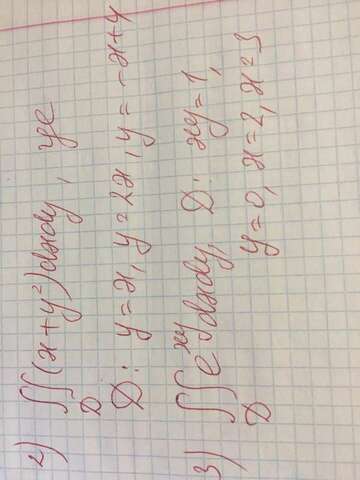 2) ∬(x+y²)dxdy, где
D
D: y=x, y=2x, y=-x+4
3) ∬e^{xy}dxdy, D: xy=1,
D
y=0, x=2, x=3